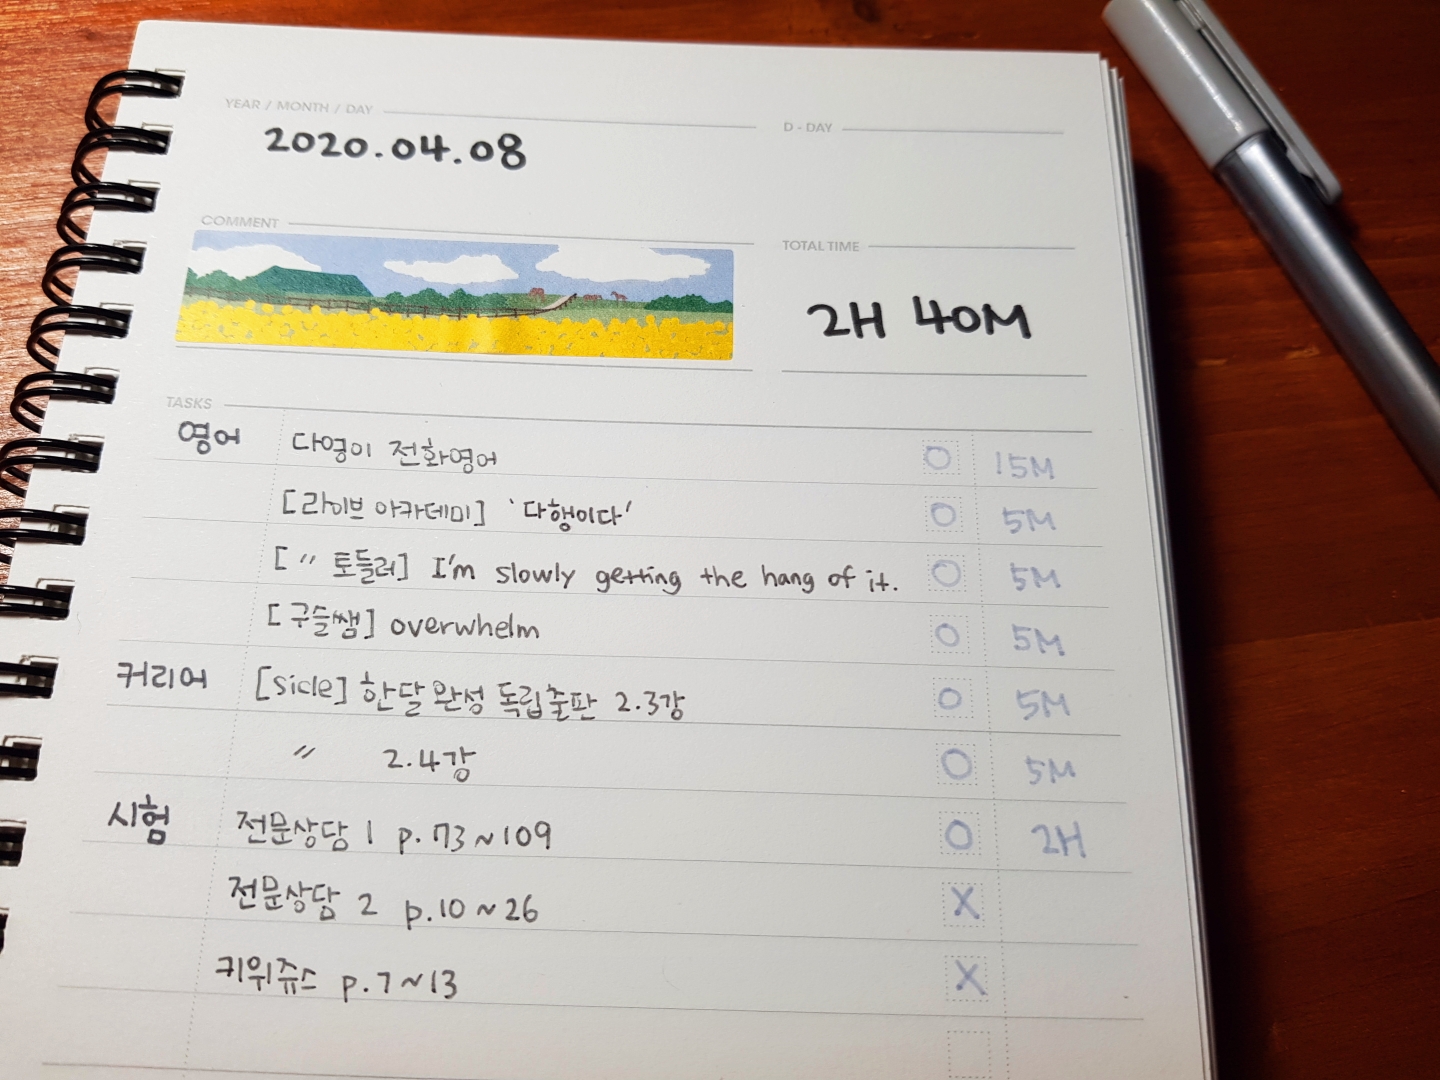 YEAR / MONTH / DAY
2020.04.08
D - DAY
COMMENT
TOTAL TIME
2H 40M
TASKS
영어 다영이 전화영어 O 15M
[라이브 아카데미] '다행이다' O 5M
[ 〃 토들러] I'm slowly getting the hang of it. O 5M
[구슬쌤] overwhelm O 5M
커리어 [Side] 한달완성 독립출판 2.3강 O 5M
〃 2.4강 O 5M
시험 전문상담 1 p.73~109 O 2H
전문상담 2 p.10~26 X
키위쥬스 p.7~13 X